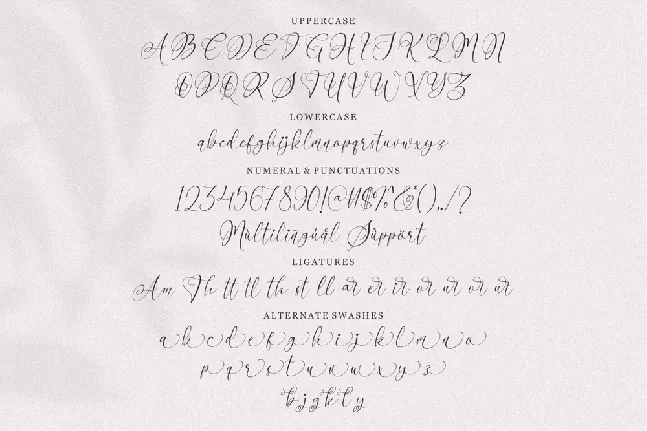 UPPERCASE
A B C D E F G H I J K L M N
O P Q R S T U V W X Y Z
LOWERCASE
abcdefghijklmnopqrstuvwxyz
NUMERAL & PUNCTUATIONS
1234567890!@#$%^&*()../?
Mùltilíngúâl Süppört
LIGATURES
Am Th tt tl th st ll ar er ir or ur or ur
ALTERNATE SWASHES
a b c d e f g h i j k l m n o
p q r s t u v w x y z
b j g k l y